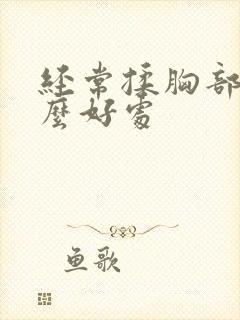 经常揉胸部
麼好處
鱼歌